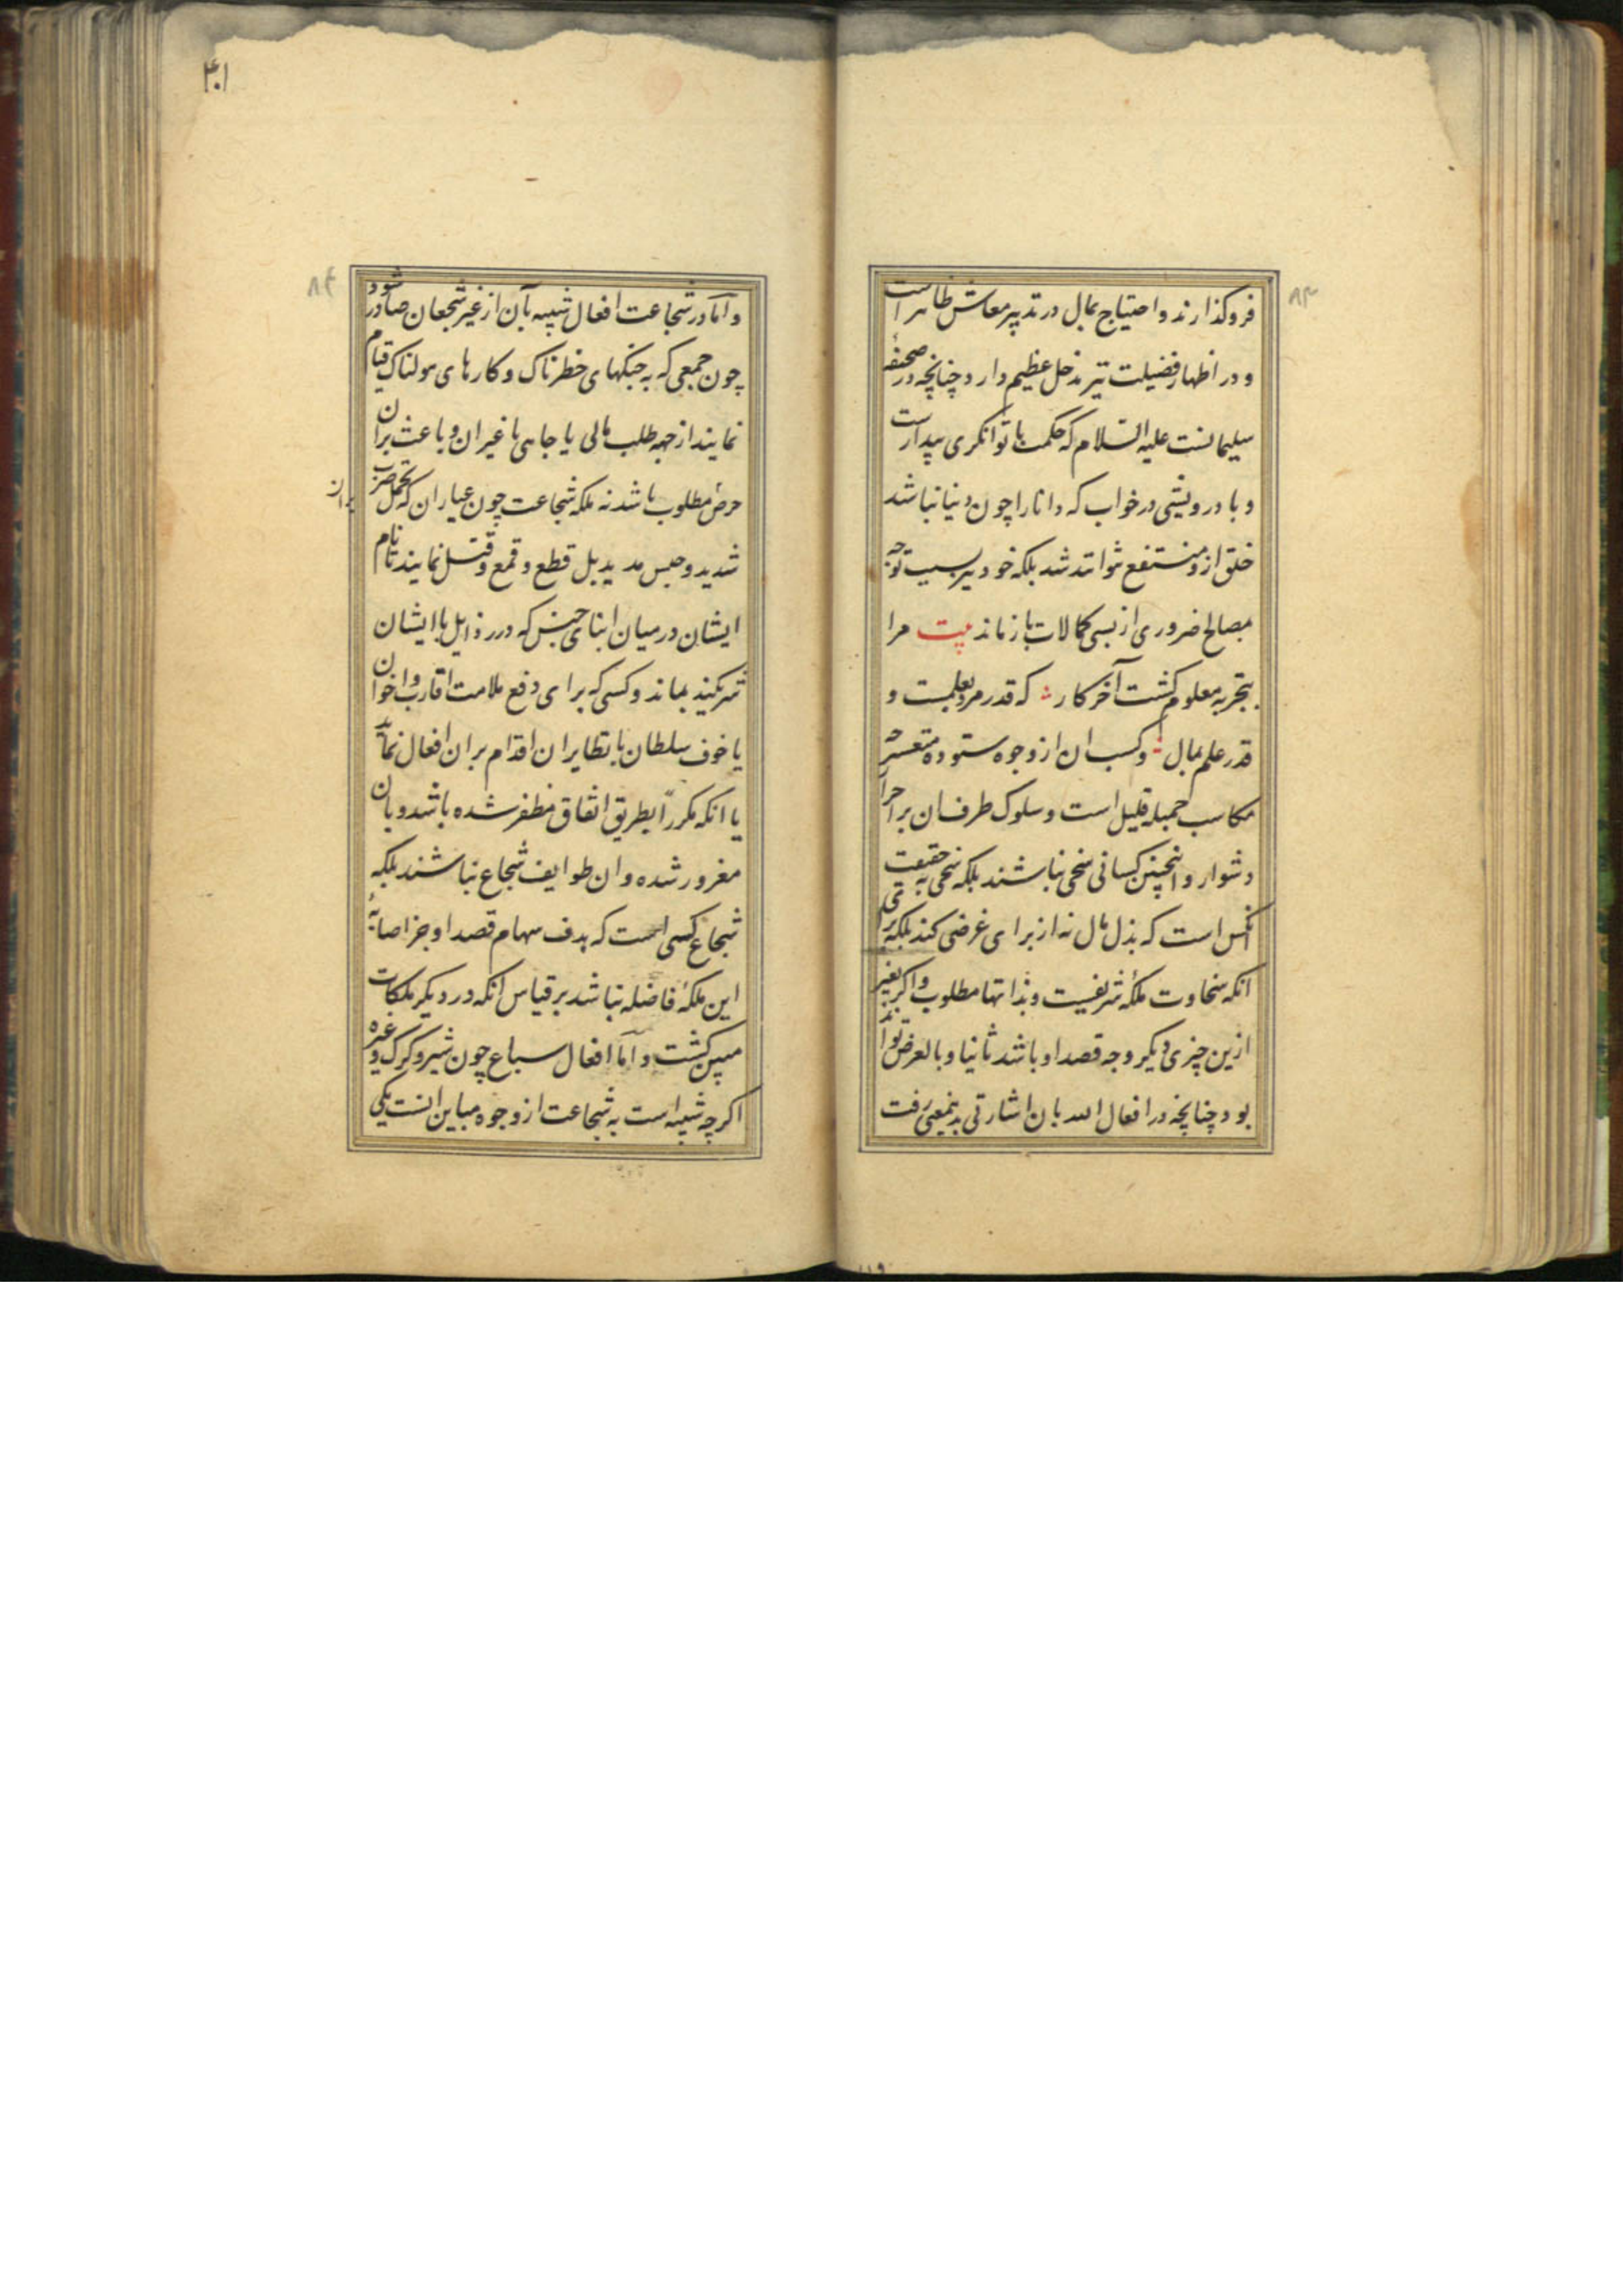 ۸۳
فروگذارند و احتیاج بمال در تدبیر معاش ظاهر است
و در اظهار فضیلت نیز مدخل عظیم دارد چنانچه در صحیفهٔ
سلیمانست علیه السلام که حکمت با توانگری بیدارست
و با درویشی در خواب که دانا را چون دنیا نباشد
خلق ازو منتفع نتوانند شد بلکه خود نیز بسبب توجه
بمصالح ضروری از بسی کمالات بازماند بیت مرا
بتجربه معلوم گشت آخر کار که قدر مرد بعلمست و
قدر علم بمال و کسب ان از وجوه ستوده متعسر چه
مکاسب جمیله قلیل است و سلوک طرف ان بر احرار
دشوار و اینچنین کسانی سخی نباشند بلکه سخی بحقیقت
انکس است که بذل مال نه از برای غرضی کند بلکه برای
انکه سخاوت ملکهٔ شریفیست و بذاتها مطلوب و اگر بغیر
ازین چیزی دیگر وجه قصد او باشد ثانیا و بالعرض تواند
بود چنانچه در افعال الله بان اشارتی بدینمعنی رفت
۴۰۱
۸۴
و اما در شجاعت افعال شبیه بآن از غیر شجعان صادر شود
چون جمعی که به جنگهای خطرناک و کارهای هولناک قیام
نمایند از جهه طلب مالی یا جاهی یا غیر ان و باعث بران
حرص مطلوب باشد نه ملکه شجاعت چون عیاران که تحمل ضرب
شدید و حبس مدید بل قطع و قمع و قتل نمایند تا نام
ایشان در میان ابنای جنس که در رذایل با ایشان
شریکند بماند و کسی که برای دفع ملامت اقارب و اخوان
یا خوف سلطان یا نظایر ان اقدام بر ان افعال نماید
یا انکه مکرراً بطریق اتفاق مظفر شده باشد و بان
مغرور شده و ان طوایف شجاع نباشند بلکه
شجاع کسی است که هدف سهام قصد او جز اصابهٔ
این ملکهٔ فاضله نباشد بر قیاس انکه در دیگر ملکات
مبین گشت و اما افعال سباع چون شیر و گرگ و غیره
اگرچه شبیه است به شجاعت از وجوه مباین انست یکی